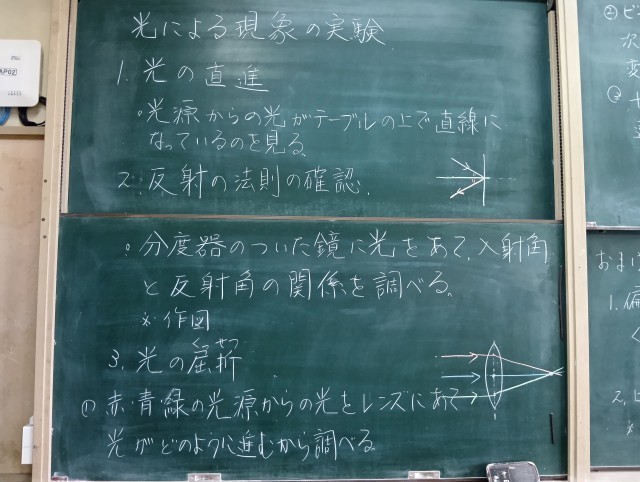 光による現象の実験
1. 光の直進
○光源からの光がテーブルの上で直線に
なっているのを見る。
2. 反射の法則の確認.
○分度器のついた鏡に光をあて、入射角
と反射角の関係を調べる。
※作図
くっせつ
3. 光の屈折
① 赤・青・緑の光源からの光をレンズにあて
光がどのように進むから調べる。
AP02
② ピ
次
変
およ
1. 偏
く
2. ヒ
※